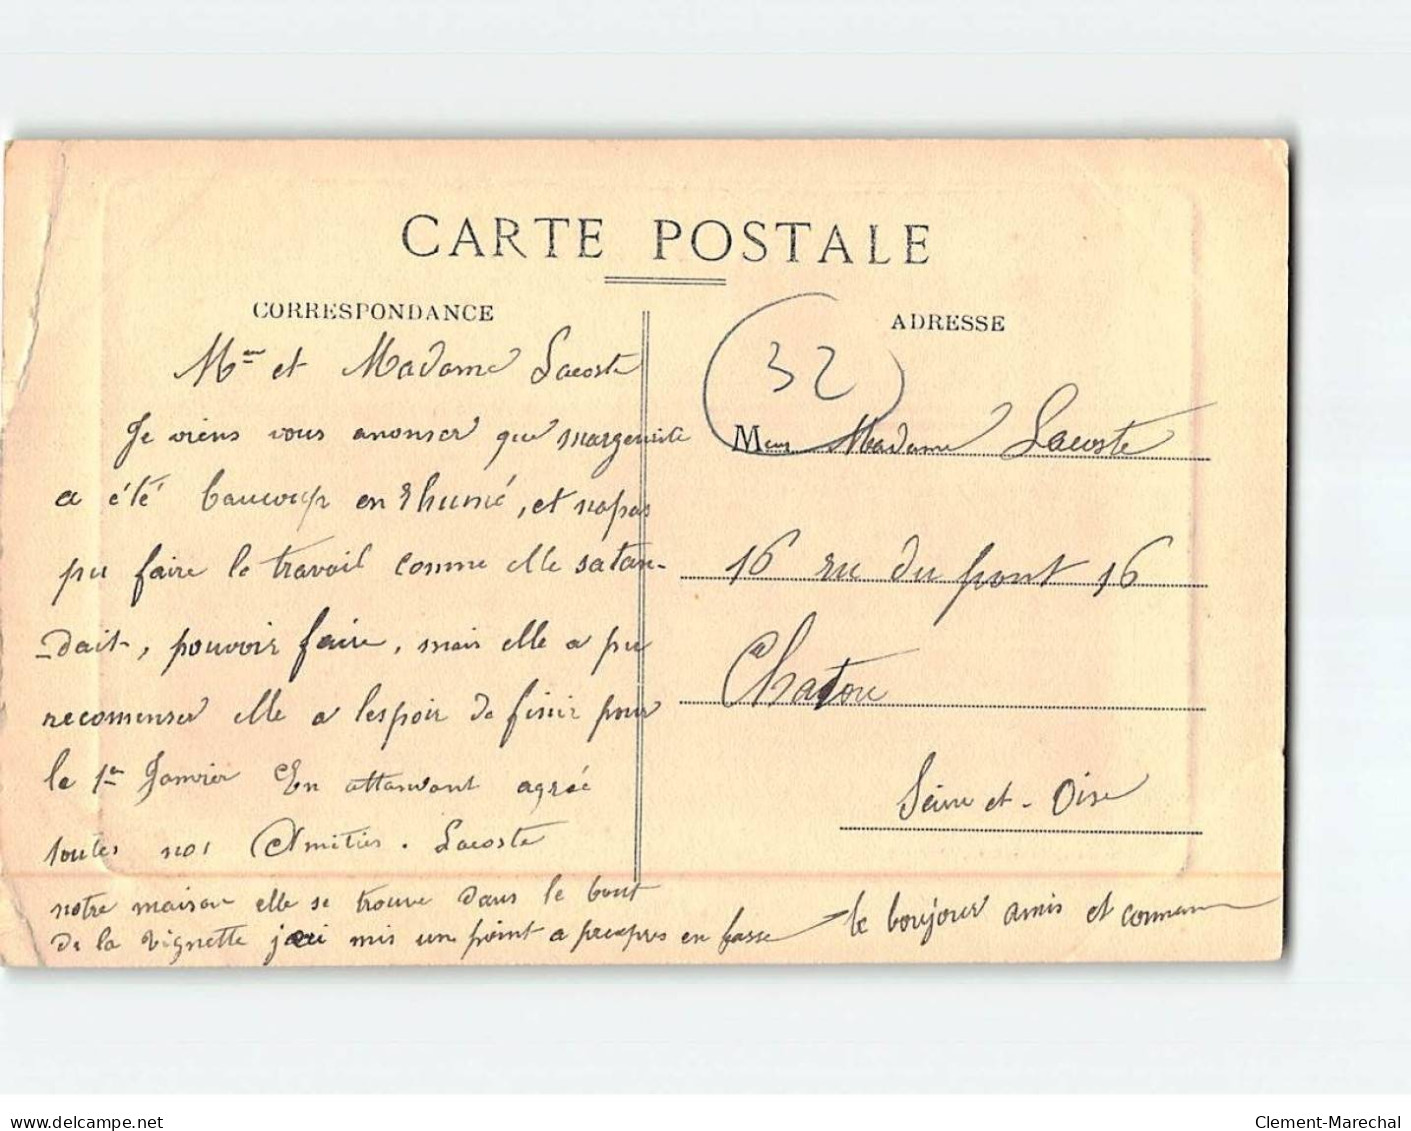 CARTE POSTALE
CORRESPONDANCE
Mr et Madame Lacoste
Je viens vous anonser que margerite
a été baucoup en rhumé, et napas
pu faire le travail comme elle satan-
-dait, pouvoir faire, mais elle a pu
recomenser elle a lespoir de finir pour
le 1er Janvier En attandant agréé
toutes nos Amitiés. Lacoste
notre maison elle se trouve dans le bout
de la vignette jai mis un point a peupres en fasse
le bonjour amis et connan
ADRESSE
32
Meur Madame Lacoste
16 ru du pont 16
Chatou
Seine et-Oise
delcampe.net
Clement-Marechal